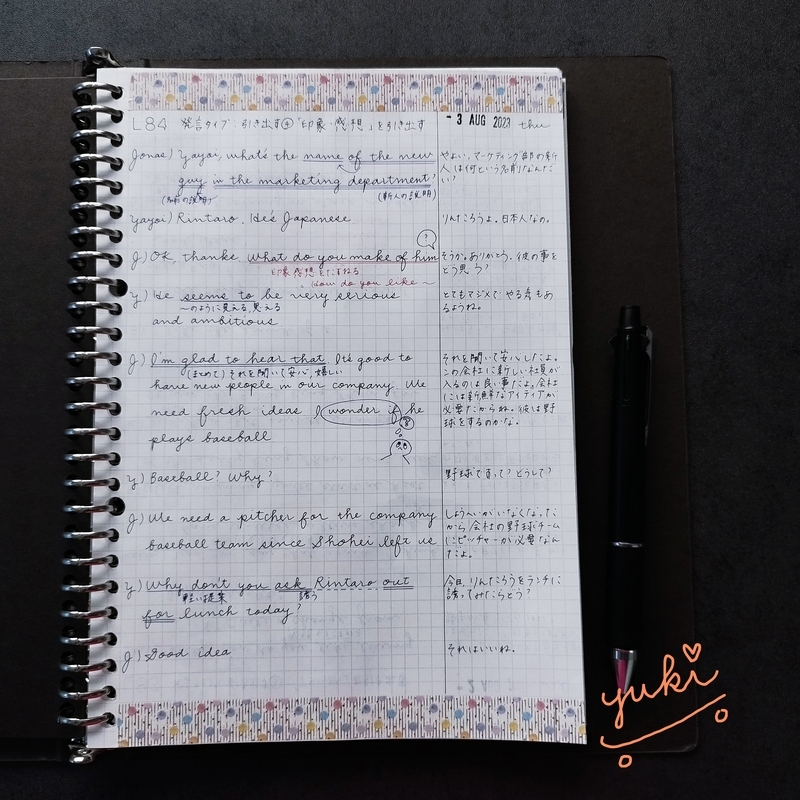 L84 発言タイプ：引き出す④「印象・感想」を引き出す
- 3 AUG 2023 thu
Jonas) Yayoi, what's the name of the new
guy in the marketing department?
(新人の説明)
Yayoi) Rintaro. He's Japanese
J) OK, thanks. What do you make of him
?
印象 感想をたずねる
How do you like ~
Y) He seems to be very serious
~のように見える,思える
and ambitious
J) I'm glad to hear that. It's good to
(まとめて)それを聞いて安心,嬉しい
have new people in our company. We
need fresh ideas I wonder if he
plays baseball
Y) Baseball? Why?
J) We need a pitcher for the company
baseball team since Shohei left us
Y) Why don't you ask Rintaro out
軽い提案 誘う
for lunch today?
J) Good idea
やよい、マーケティング部の新
人は何という名前なんだ
い?
りんたろうよ。日本人なの。
そうか。ありがとう。彼の事を
どう思う?
とてもマジメで やる気もあ
るようね。
それを聞いて安心したよ。
この会社に新しい社員が
入るのは良い事だよ。会社
には新鮮なアイディアが
必要だからね。彼は野
球をするのかな。
野球ですって?どうして?
しょうへいがいなくなった
から会社の野球チーム
にピッチャーが必要なん
だよ。
今日、りんたろうをランチに
誘ってみたらどう?
それはいいね。
yuki